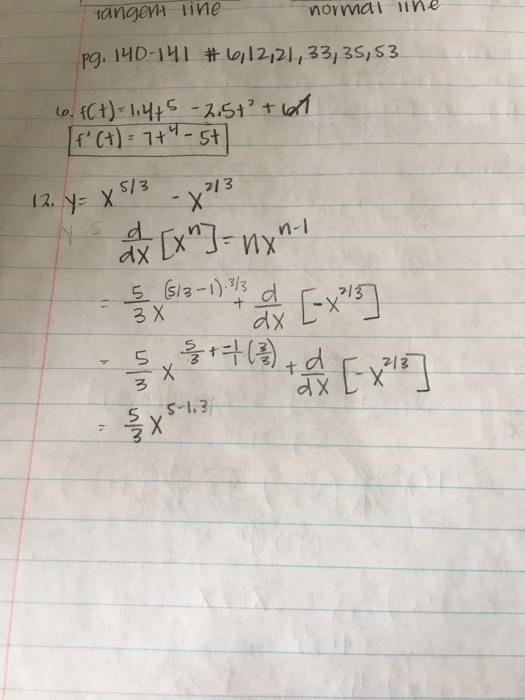 tangent line normal line
pg. 140-141 # 6,12,21,33,35,53
6. f(t) = 1.4t^5 - 2.5t^2 + 6.7
f'(t) = 7t^4 - 5t
12. y = x^5/3 - x^2/3
y
d/dx [x^n] = nx^n-1
= 5/3 x^(5/3-1)·3/3 + d/dx [-x^2/3]
= 5/3 x^5/3 + -1/1 (3/3) + d/dx [-x^2/3]
= 5/3 x^5-1.3